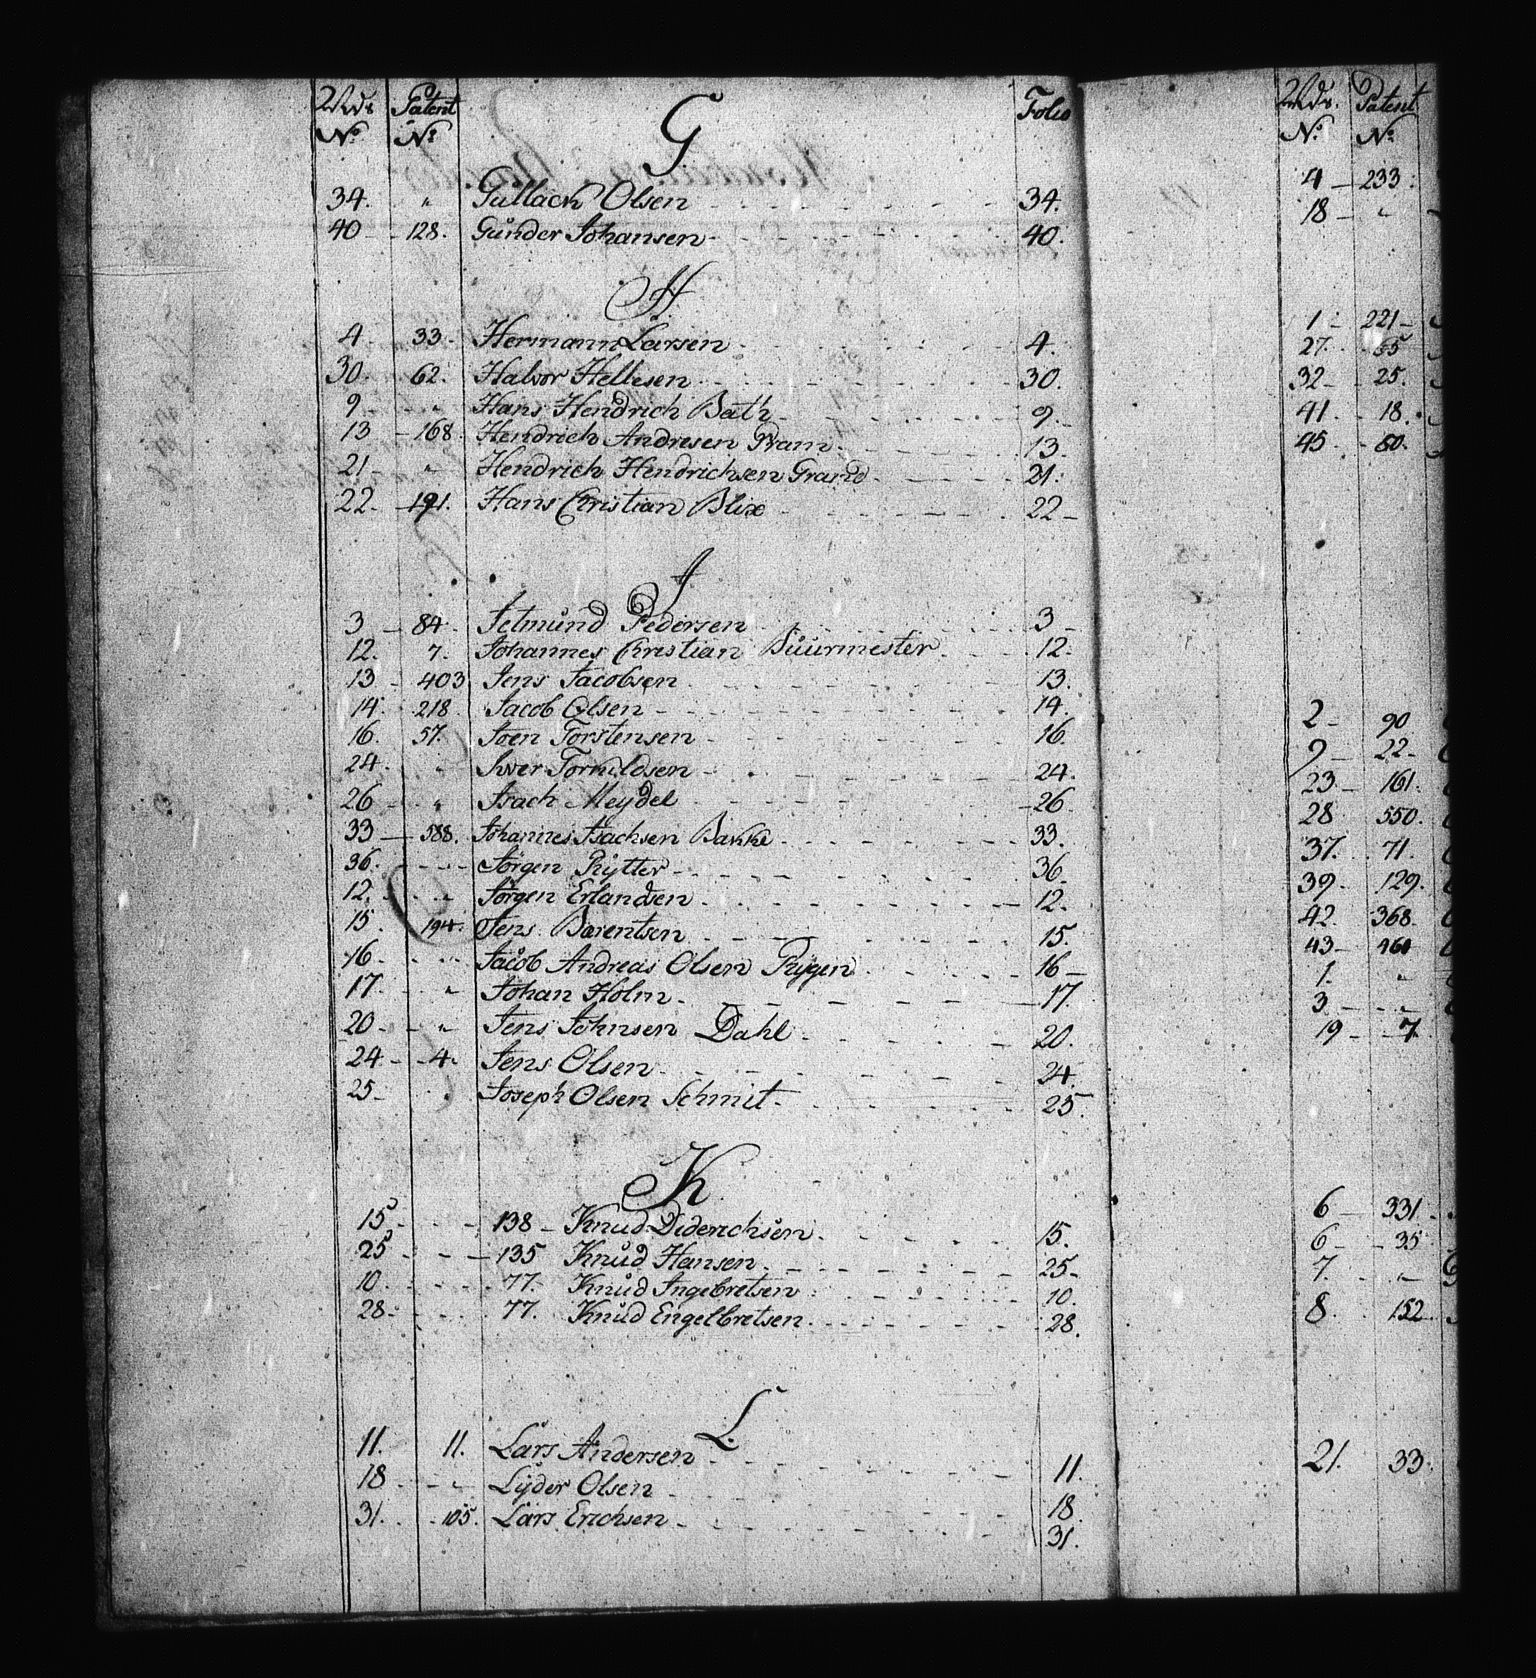 Patent Folio
No No
G
34. " Gullach Olsen 34.
40 128. Gŭnder Johansen 40.
H
4 33 Hermann Larsen 4.
30. 62. Halvor Hellesen 30.
9 " Hans Hendrich Bath 9.
13 168. Hendrich Andresen Pram 13.
21 " Hendrich Hendrichsen Grand 21.
22 191. Hans Christian Blix 22
J
3 84. Jetmŭnd Pedersen 3
12. 7. Johannes Christian Bŭŭrmester 12.
13 403 Jens Jacobsen 13.
14. 218 Jacob Olsen 14.
16. 57. Joen Torstensen 16.
24. " Iver Torkildsen 24.
26 " Isach Meydel 26.
33 588. Johannes Isachsen Bakke 33.
36. Jørgen Rÿtter 36
12. " Jørgen Erlandsen 12.
15. 194. Jens Barentsen 15.
16. " Jacob Andreas Olsen Rÿgen 16
17. " Johan Holm 17.
20 " Jens Johnsen Dahl 20.
24 4. Jens Olsen 24.
25 " Joseph Olsen Schmit 25.
K
15 138 Knud Diderichsen 15.
25 135 Knŭd Hansen 25
10. 77. Knŭd Ingebretsen 10.
28. 77. Knŭd Engelbretsen 28.
L.
11. 11. Lars Andersen 11.
18 " Lÿder Olsen 18
31. 105. Lars Erichsen 31.
Patent
No No
4 233.
18 "
1 221
27. 55
32 25.
41 18.
45 80.
2 90
9 22
23 161.
28 550.
37. 71.
39 129.
42 368.
43 460
1. "
3 "
19 7.
6 331
6 35
7. "
8. 152
21. 33.